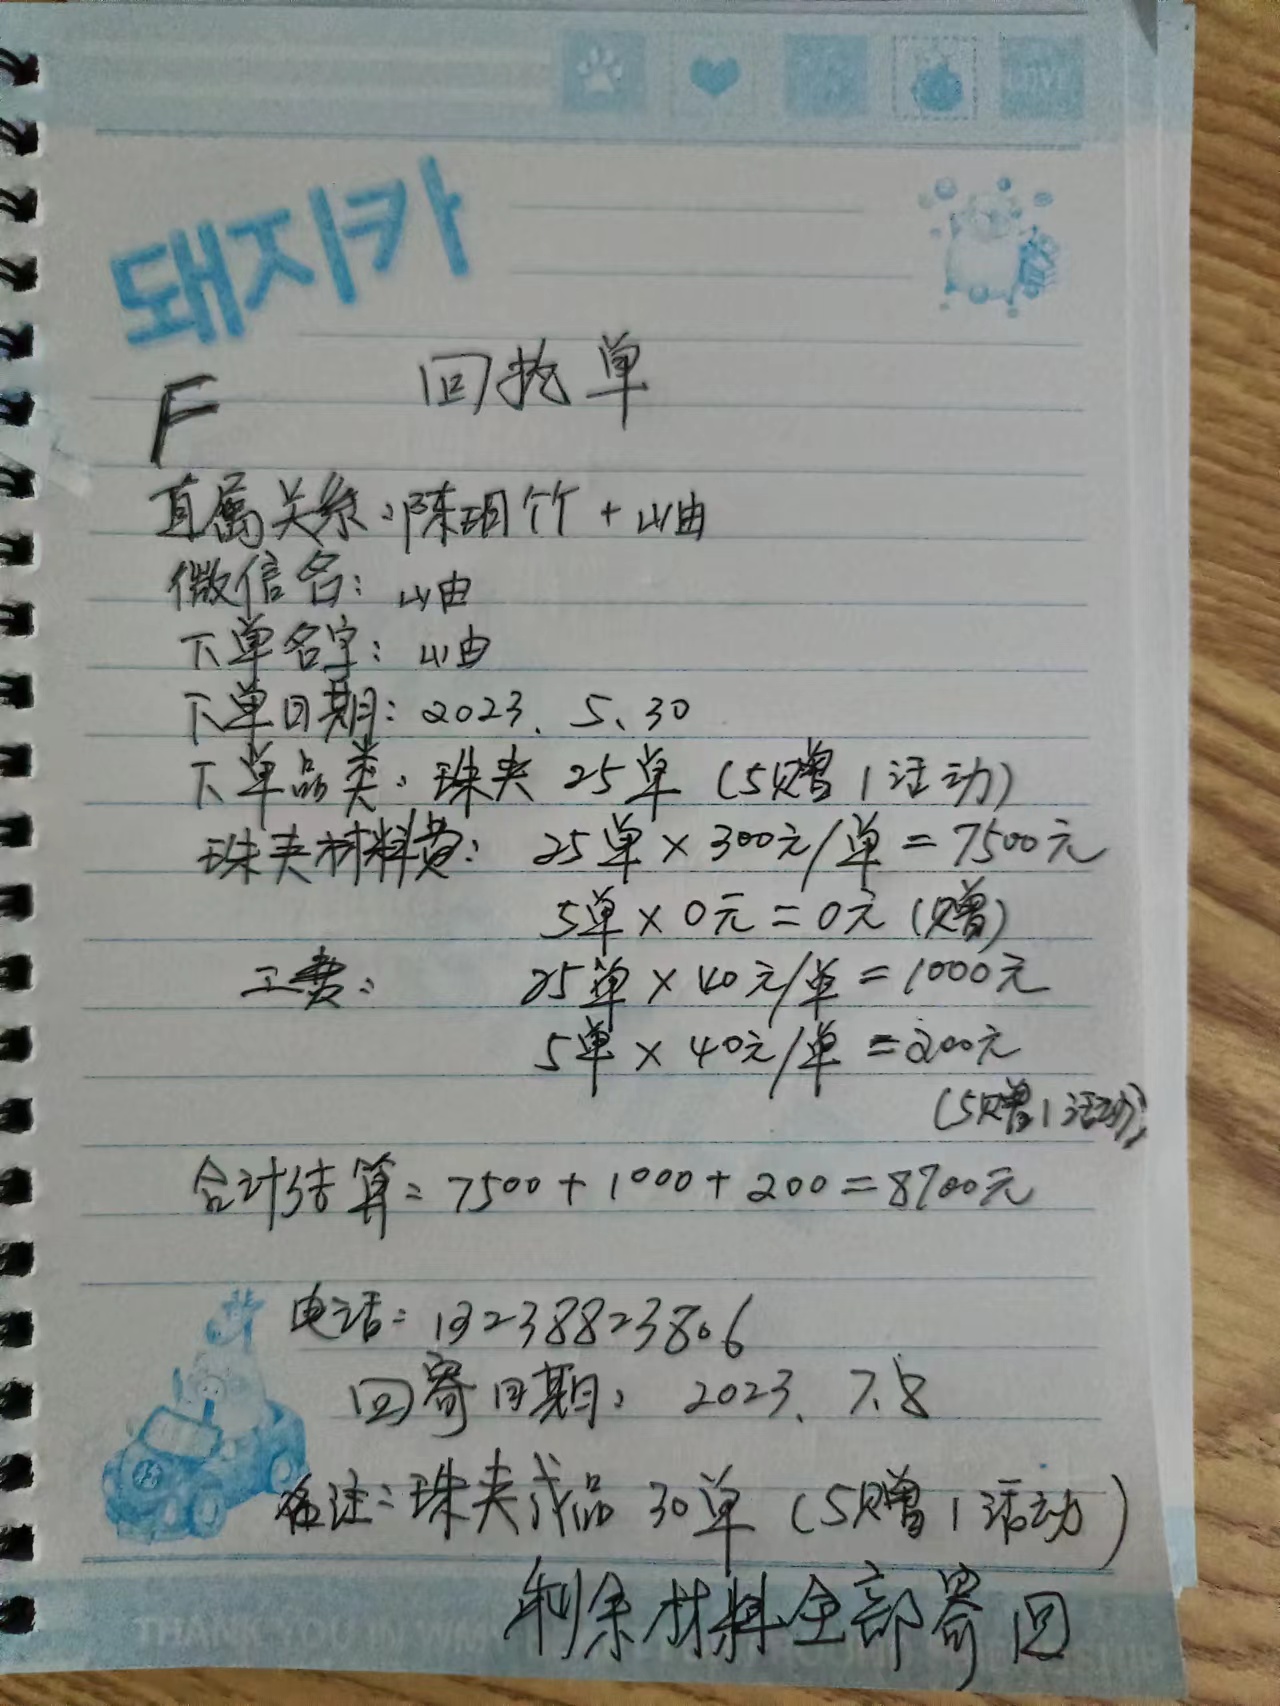 LOVE
돼지카
回执单
F
直属关系：陈玥竹 + 山由
微信名：山由
下单名字：山由
下单日期：2023、5、30
下单品类：珠夹 25单（5赠1活动）
珠夹材料费：25单×300元/单=7500元
5单×0元=0元（赠）
工费：25单×40元/单=1000元
5单×40元/单=200元
（5赠1活动）
合计结算：7500+1000+200=8700元
电话：13238823806
回寄日期：2023、7.8
备注：珠夹成品 30单（5赠1活动）
剩余材料全部寄回
THANK YOU